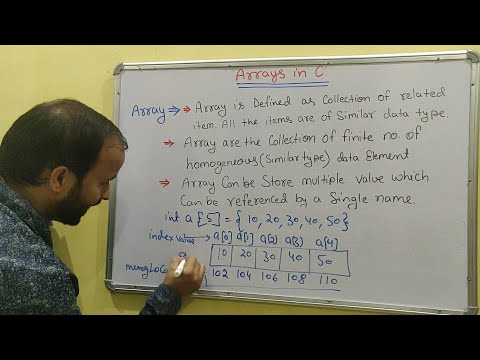 Arrays in C
Array ⇒ → Array is Defined as Collection of related
item. All the items are of Similar data type.
→ Array are the Collection of finite no. of
homogeneous (Similar type) data Element
→ Array Can be Store multiple value which
Can be referenced by a Single name.
int a [5] = { 10, 20, 30, 40, 50}
index value → a[0] a[1] a(2] a(3] a[4]
a 10 20 30 40 50
102 104 106 108 110